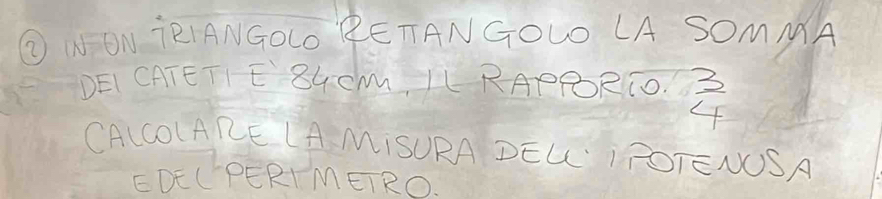 ② IN UN TRIANGOLO RETTANGOLO LA SOMMA
DEI CATETI E' 84 cm, IL RAPPORTO. 3/4
CALCOLARE LA MISURA DELL' IPOTENUSA
E DEL PERIMETRO.